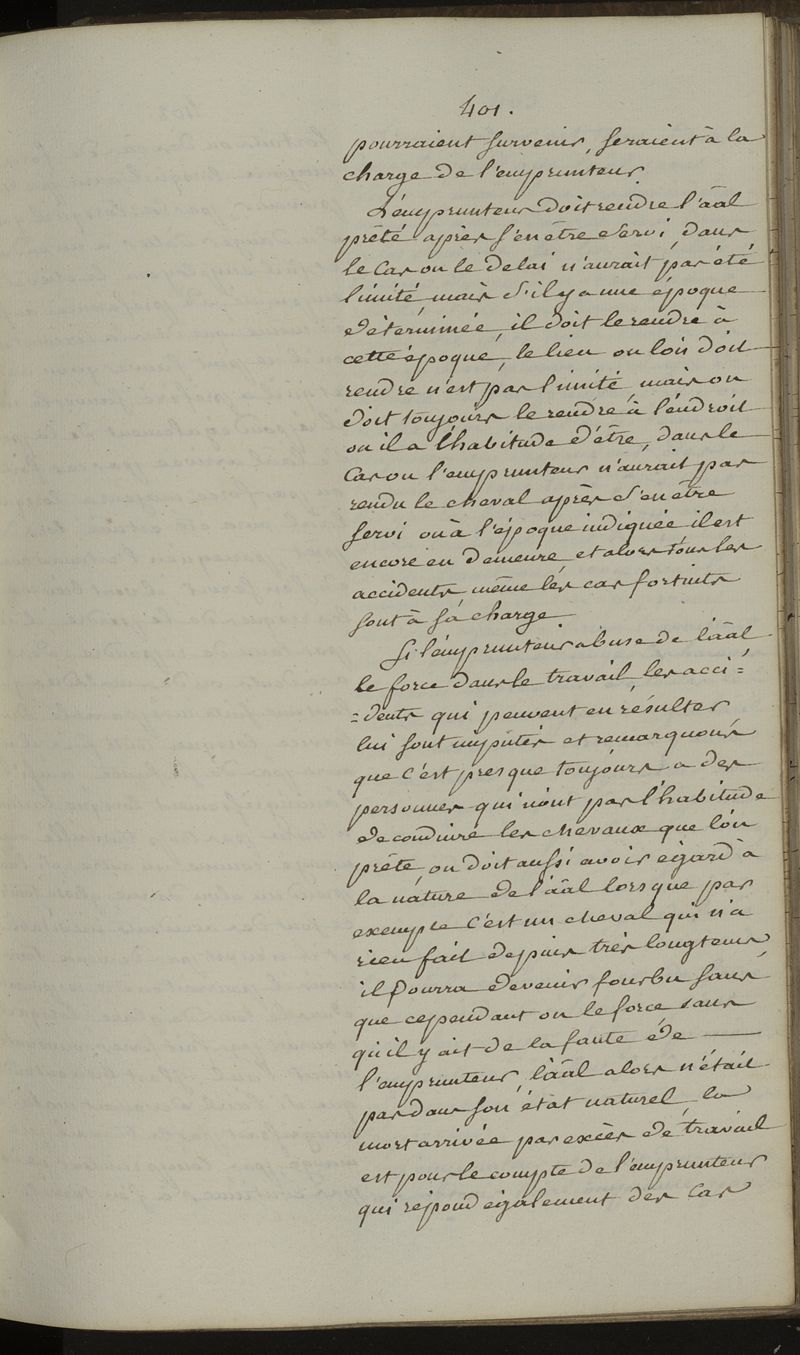 401.
pourraient survenir, seraient à la
charge de l'emprunteur
L'emprunteur doit rendre l'aâl
prêté après s'en être servi, dans
le cas ou le delai n'aurait pas été
limité, mais s'il y a une époque
déterminée, il doit le rendre à
cette époque, le lieu ou lon doit
rendre n'est pas limité, mais on
doit toujours le rendre à l'endroit
ou il a l'habitude d'être, dans le
cas ou l'emprunteur n'aurait pas
rendu le cheval après s'en être
servi ou à l'époque indiquée il est
encore en demeure, et alors tous les
accidents, même les cas fortuits
sont à sa charge
Si l'emprunteur abuse de l'aâl
le force dans le travail les acci=
=dents qui peuvent en résulter
lui sont imputés et remarquons
que c'est presque toujours a des
personnes qui n'ont pas l'habitude
de conduire les chevaux que l'on
prête, on doit aussi avoir égard à
la nature de l'aâl lorsque par
exemple c'est un cheval qui n'a
rien fait depuis très longtems
il pourra devenir fourbu sans
que cependant on le force, sans
qu'il y ait de la faute de
l'emprunteur, l'aâl alors n'était
pas dans son état naturel, la
mort arrivée par excès de travail
est pour le compte de l'emprunteur
qui répond également des cas